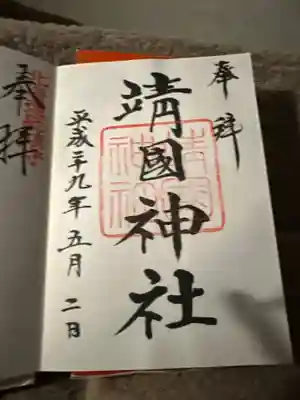 奉拝
靖國神社
平成二十九年五月二日
奉拝